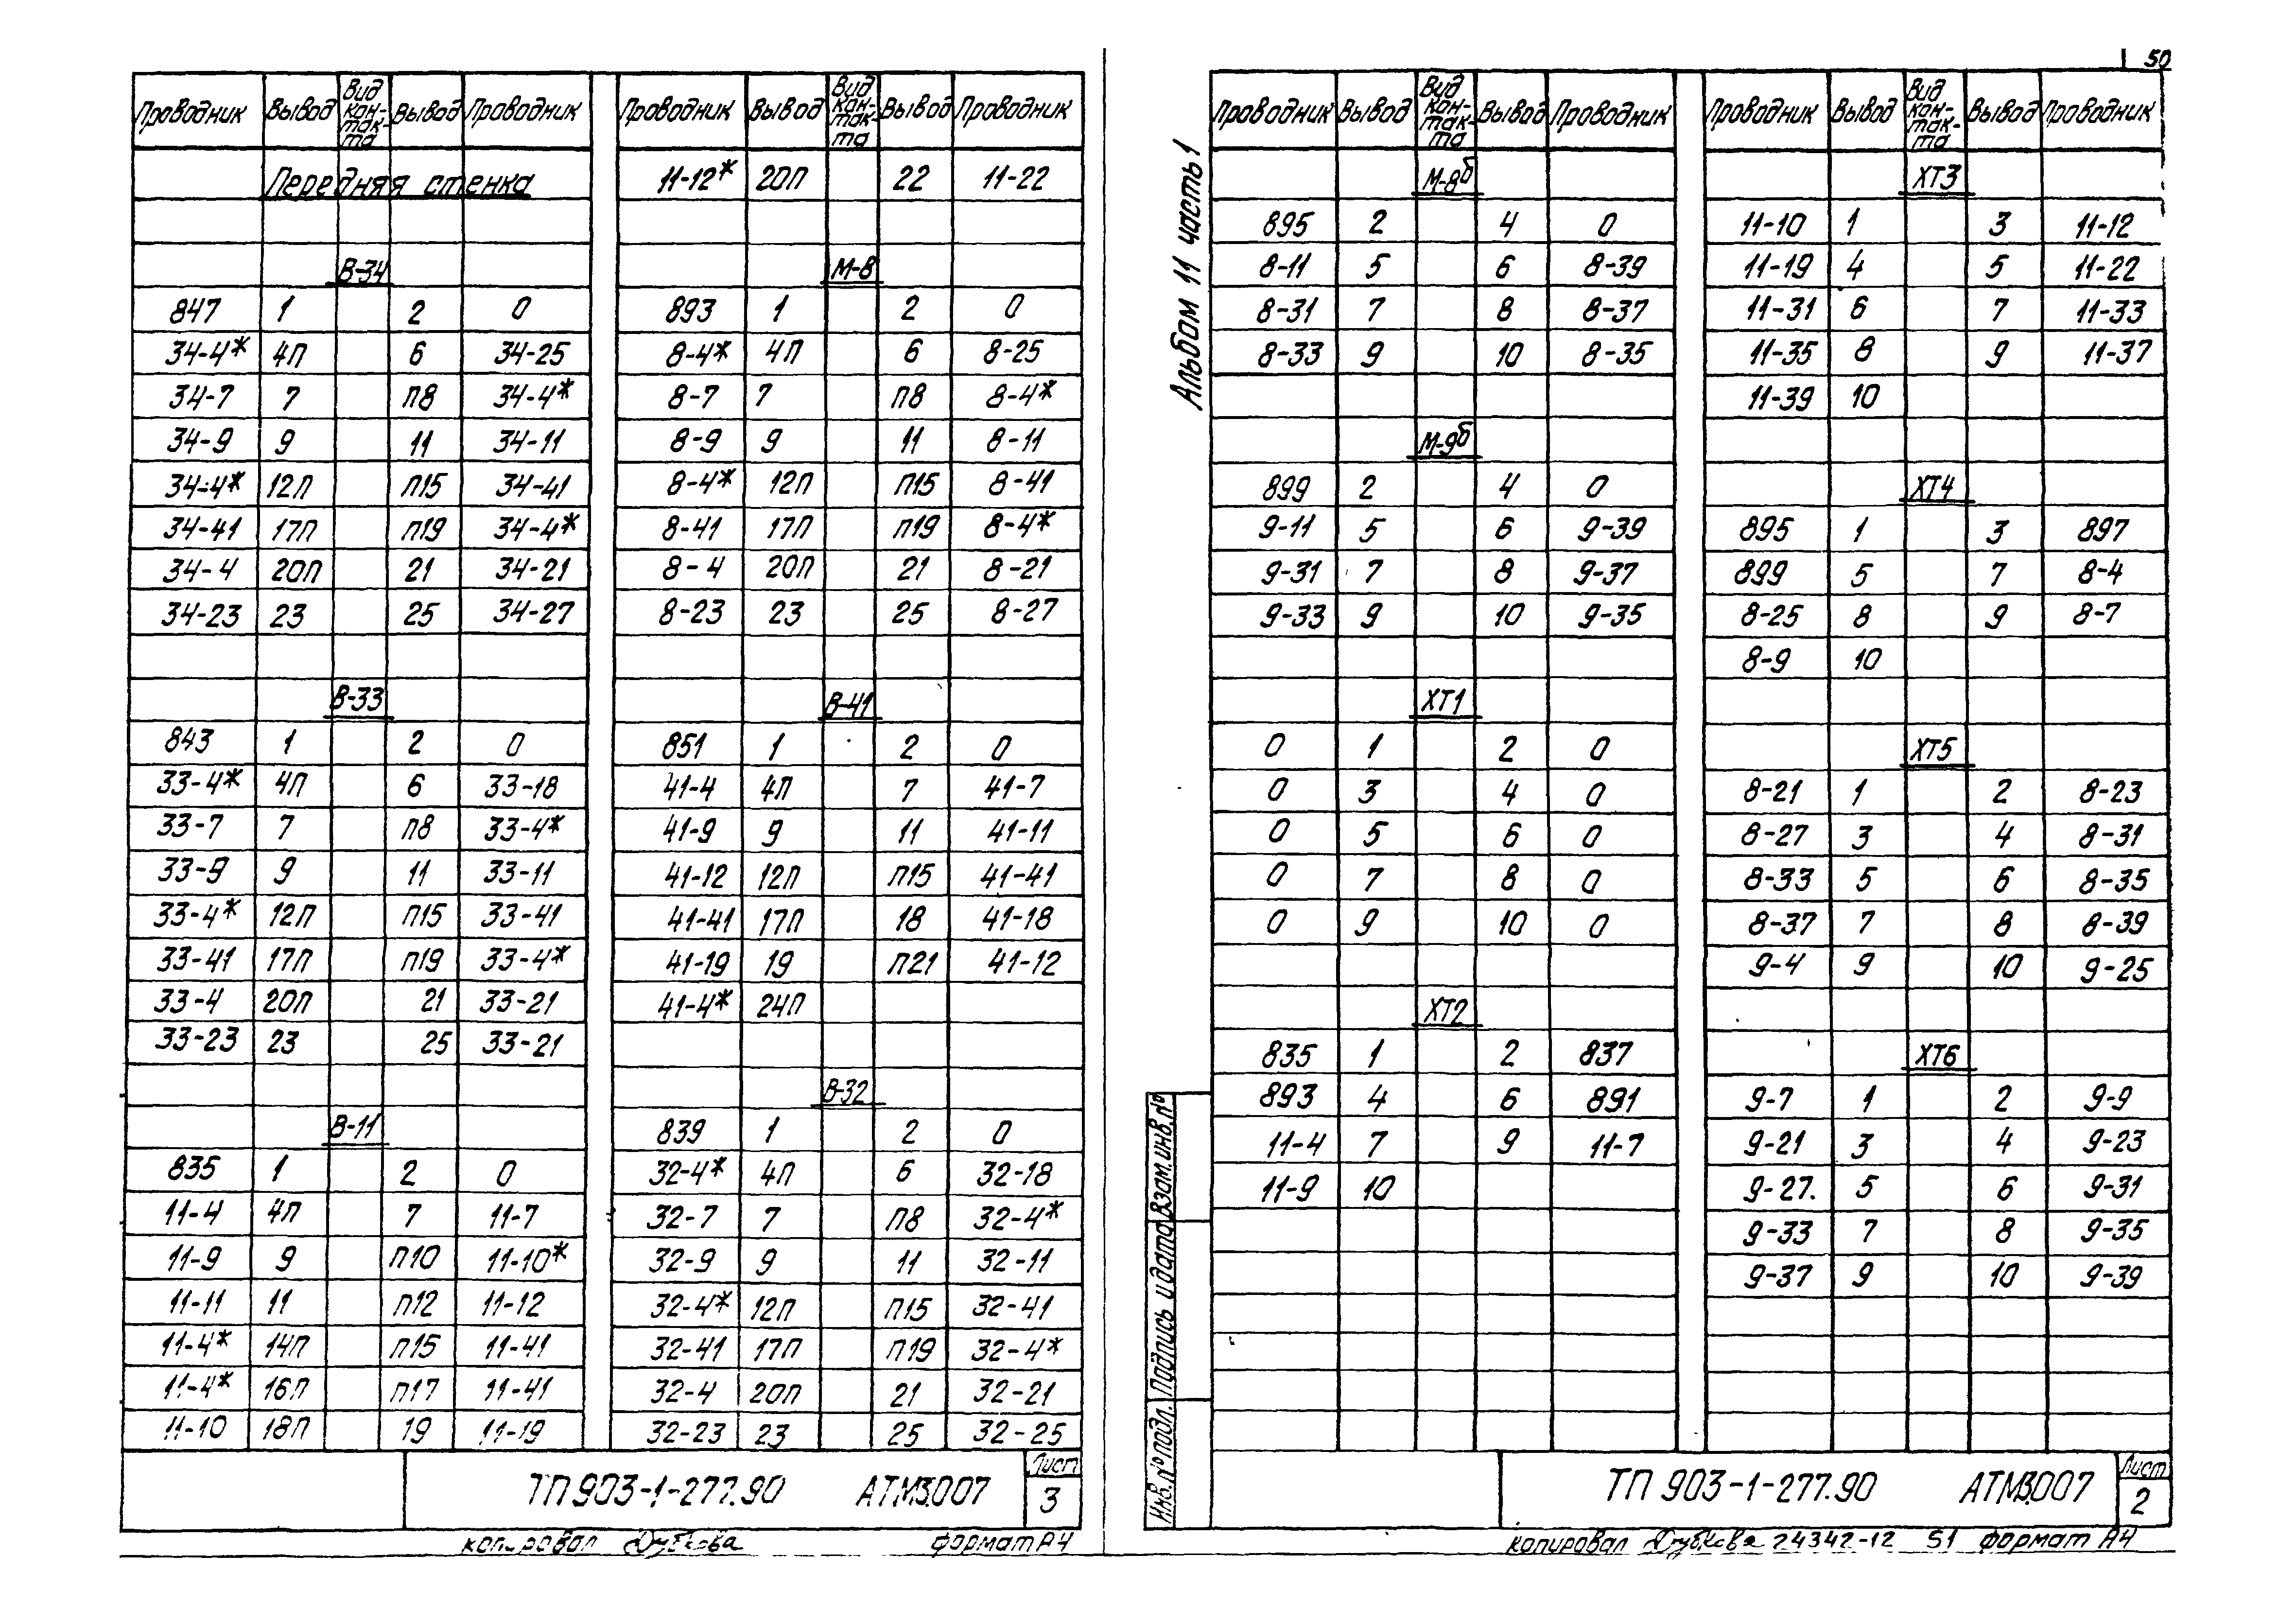 50
Проводник Вывод Вид кон-так-та Вывод Проводник
Передняя стенка
В-34
847 1 2 0
34-4* 4П 6 34-25
34-7 7 П8 34-4*
34-9 9 11 34-11
34-4* 12П П15 34-41
34-41 17П П19 34-4*
34-4 20П 21 34-21
34-23 23 25 34-27
В-33
843 1 2 0
33-4* 4П 6 33-18
33-7 7 П8 33-4*
33-9 9 11 33-11
33-4* 12П П15 33-41
33-41 17П П19 33-4*
33-4 20П 21 33-21
33-23 23 25 33-21
В-11
835 1 2 0
11-4 4П 7 11-7
11-9 9 П10 11-10*
11-11 11 П12 11-12
11-4* 14П П15 11-41
11-4* 16П П17 11-41
11-10 18П 19 11-19
Проводник Вывод Вид кон-так-та Вывод Проводник
11-12* 20П 22 11-22
М-8
893 1 2 0
8-4* 4П 6 8-25
8-7 7 П8 8-4*
8-9 9 11 8-11
8-4* 12П П15 8-41
8-41 17П П19 8-4*
8-4 20П 21 8-21
8-23 23 25 8-27
В-41
851 1 2 0
41-4 4П 7 41-7
41-9 9 11 41-11
41-12 12П П15 41-41
41-41 17П 18 41-18
41-19 19 П21 41-12
41-4* 24П
В-32
839 1 2 0
32-4* 4П 6 32-18
32-7 7 П8 32-4*
32-9 9 11 32-11
32-4* 12П П15 32-41
32-41 17П П19 32-4*
32-4 20П 21 32-21
32-23 23 25 32-25
ТП 903-1-277.90 АТМ3.007
Лист
3
копировал Дубкова формат А4
Альбом 11 часть 1
Проводник Вывод Вид кон-так-та Вывод Проводник
М-8б
895 2 4 0
8-11 5 6 8-39
8-31 7 8 8-37
8-33 9 10 8-35
М-9б
899 2 4 0
9-11 5 6 9-39
9-31 7 8 9-37
9-33 9 10 9-35
ХТ1
0 1 2 0
0 3 4 0
0 5 6 0
0 7 8 0
0 9 10 0
ХТ2
835 1 2 837
893 4 6 891
11-4 7 9 11-7
11-9 10
Проводник Вывод Вид кон-так-та Вывод Проводник
ХТ3
11-10 1 3 11-12
11-19 4 5 11-22
11-31 6 7 11-33
11-35 8 9 11-37
11-39 10
ХТ4
895 1 3 897
899 5 7 8-4
8-25 8 9 8-7
8-9 10
ХТ5
8-21 1 2 8-23
8-27 3 4 8-31
8-33 5 6 8-35
8-37 7 8 8-39
9-4 9 10 9-25
ХТ6
9-7 1 2 9-9
9-21 3 4 9-23
9-27. 5 6 9-31
9-33 7 8 9-35
9-37 9 10 9-39
Инв.№ подл. Подпись и дата Взам.инв.№
ТП 903-1-277.90 АТМ3.007
Лист
2
копировал Дубкова 24342-12 51 формат А4